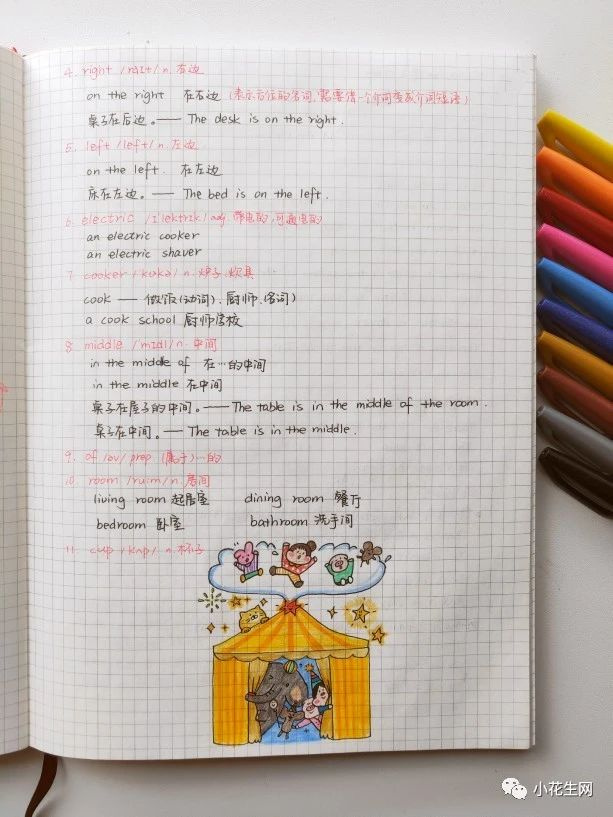 4. right /raɪt/ n. 右边
on the right 在右边 (表示方位的名词,需要借一个介词变成介词短语)
桌子在右边。—— The desk is on the right.
5. left /left/ n. 左边
on the left. 在左边
床在左边。— The bed is on the left.
6. electric /ɪ'lektrɪk/ adj. 带电的,可通电的
an electric cooker
an electric shaver
7. cooker /kʊkə/ n. 炉子,炊具
cook —— 做饭(动词), 厨师(名词)
a cook school 厨师学校
8. middle /mɪdl/ n. 中间
in the middle of 在…的中间
in the middle 在中间
桌子在屋子的中间。—— The table is in the middle of the room.
桌子在中间。— The table is in the middle.
9. of /əv/ prep (属于)…的
10. room /ru:m/ n. 房间
living room 起居室 dining room 餐厅
bedroom 卧室 bathroom 洗手间
11. cup /kʌp/ n. 杯子
小花生网